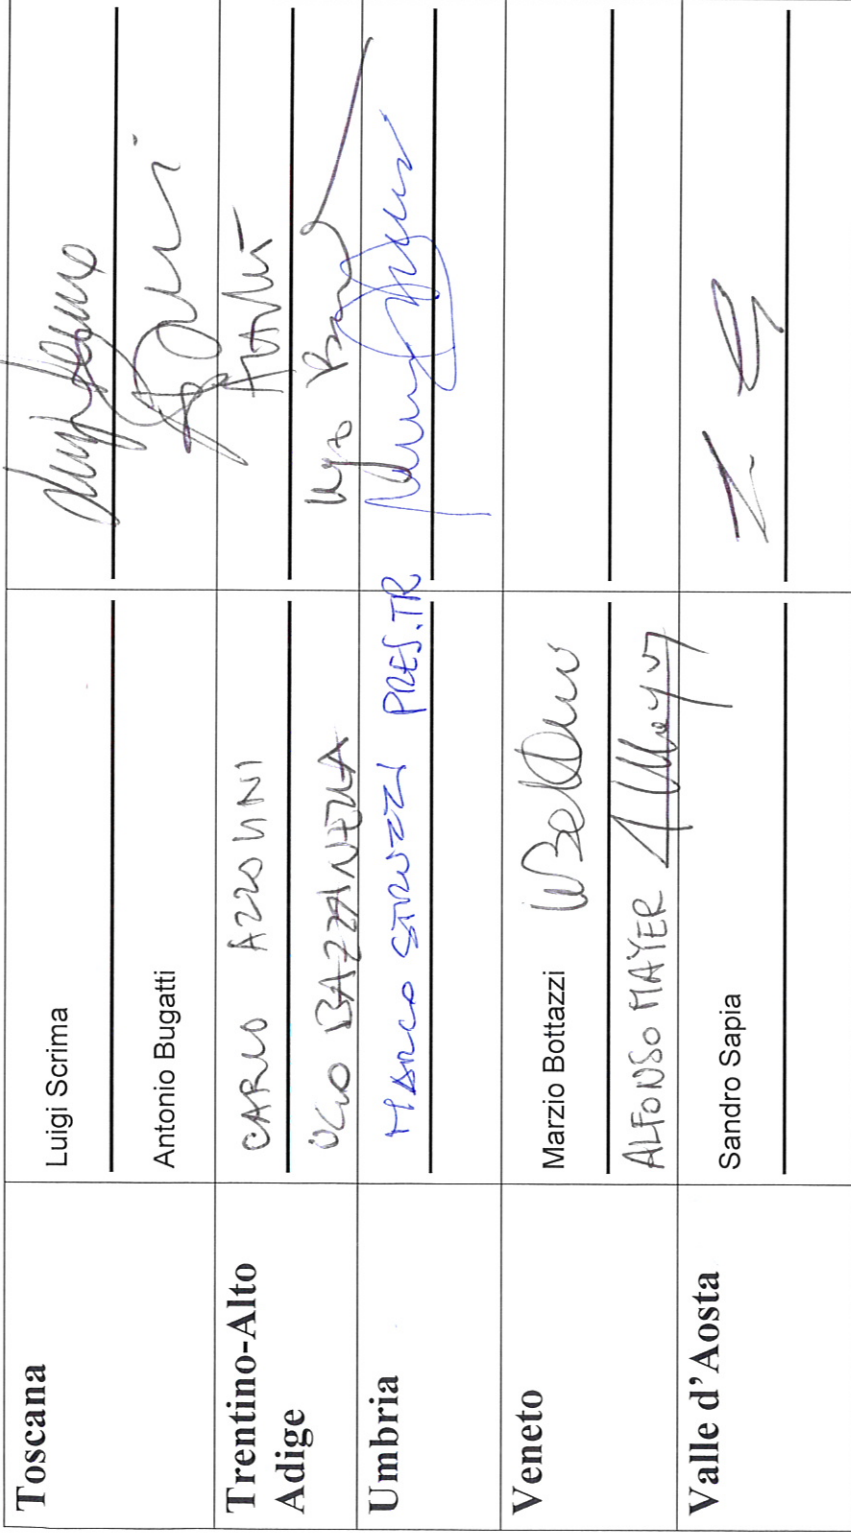 Toscana
Luigi Scrima
Antonio Bugatti
Trentino-Alto
Adige
CARLO AZZOLINI
UGO BAZZANELLA
Umbria
MARCO STRUZZI PRES.TR
Veneto
Marzio Bottazzi
ALFONSO MAYER
Valle d'Aosta
Sandro Sapia